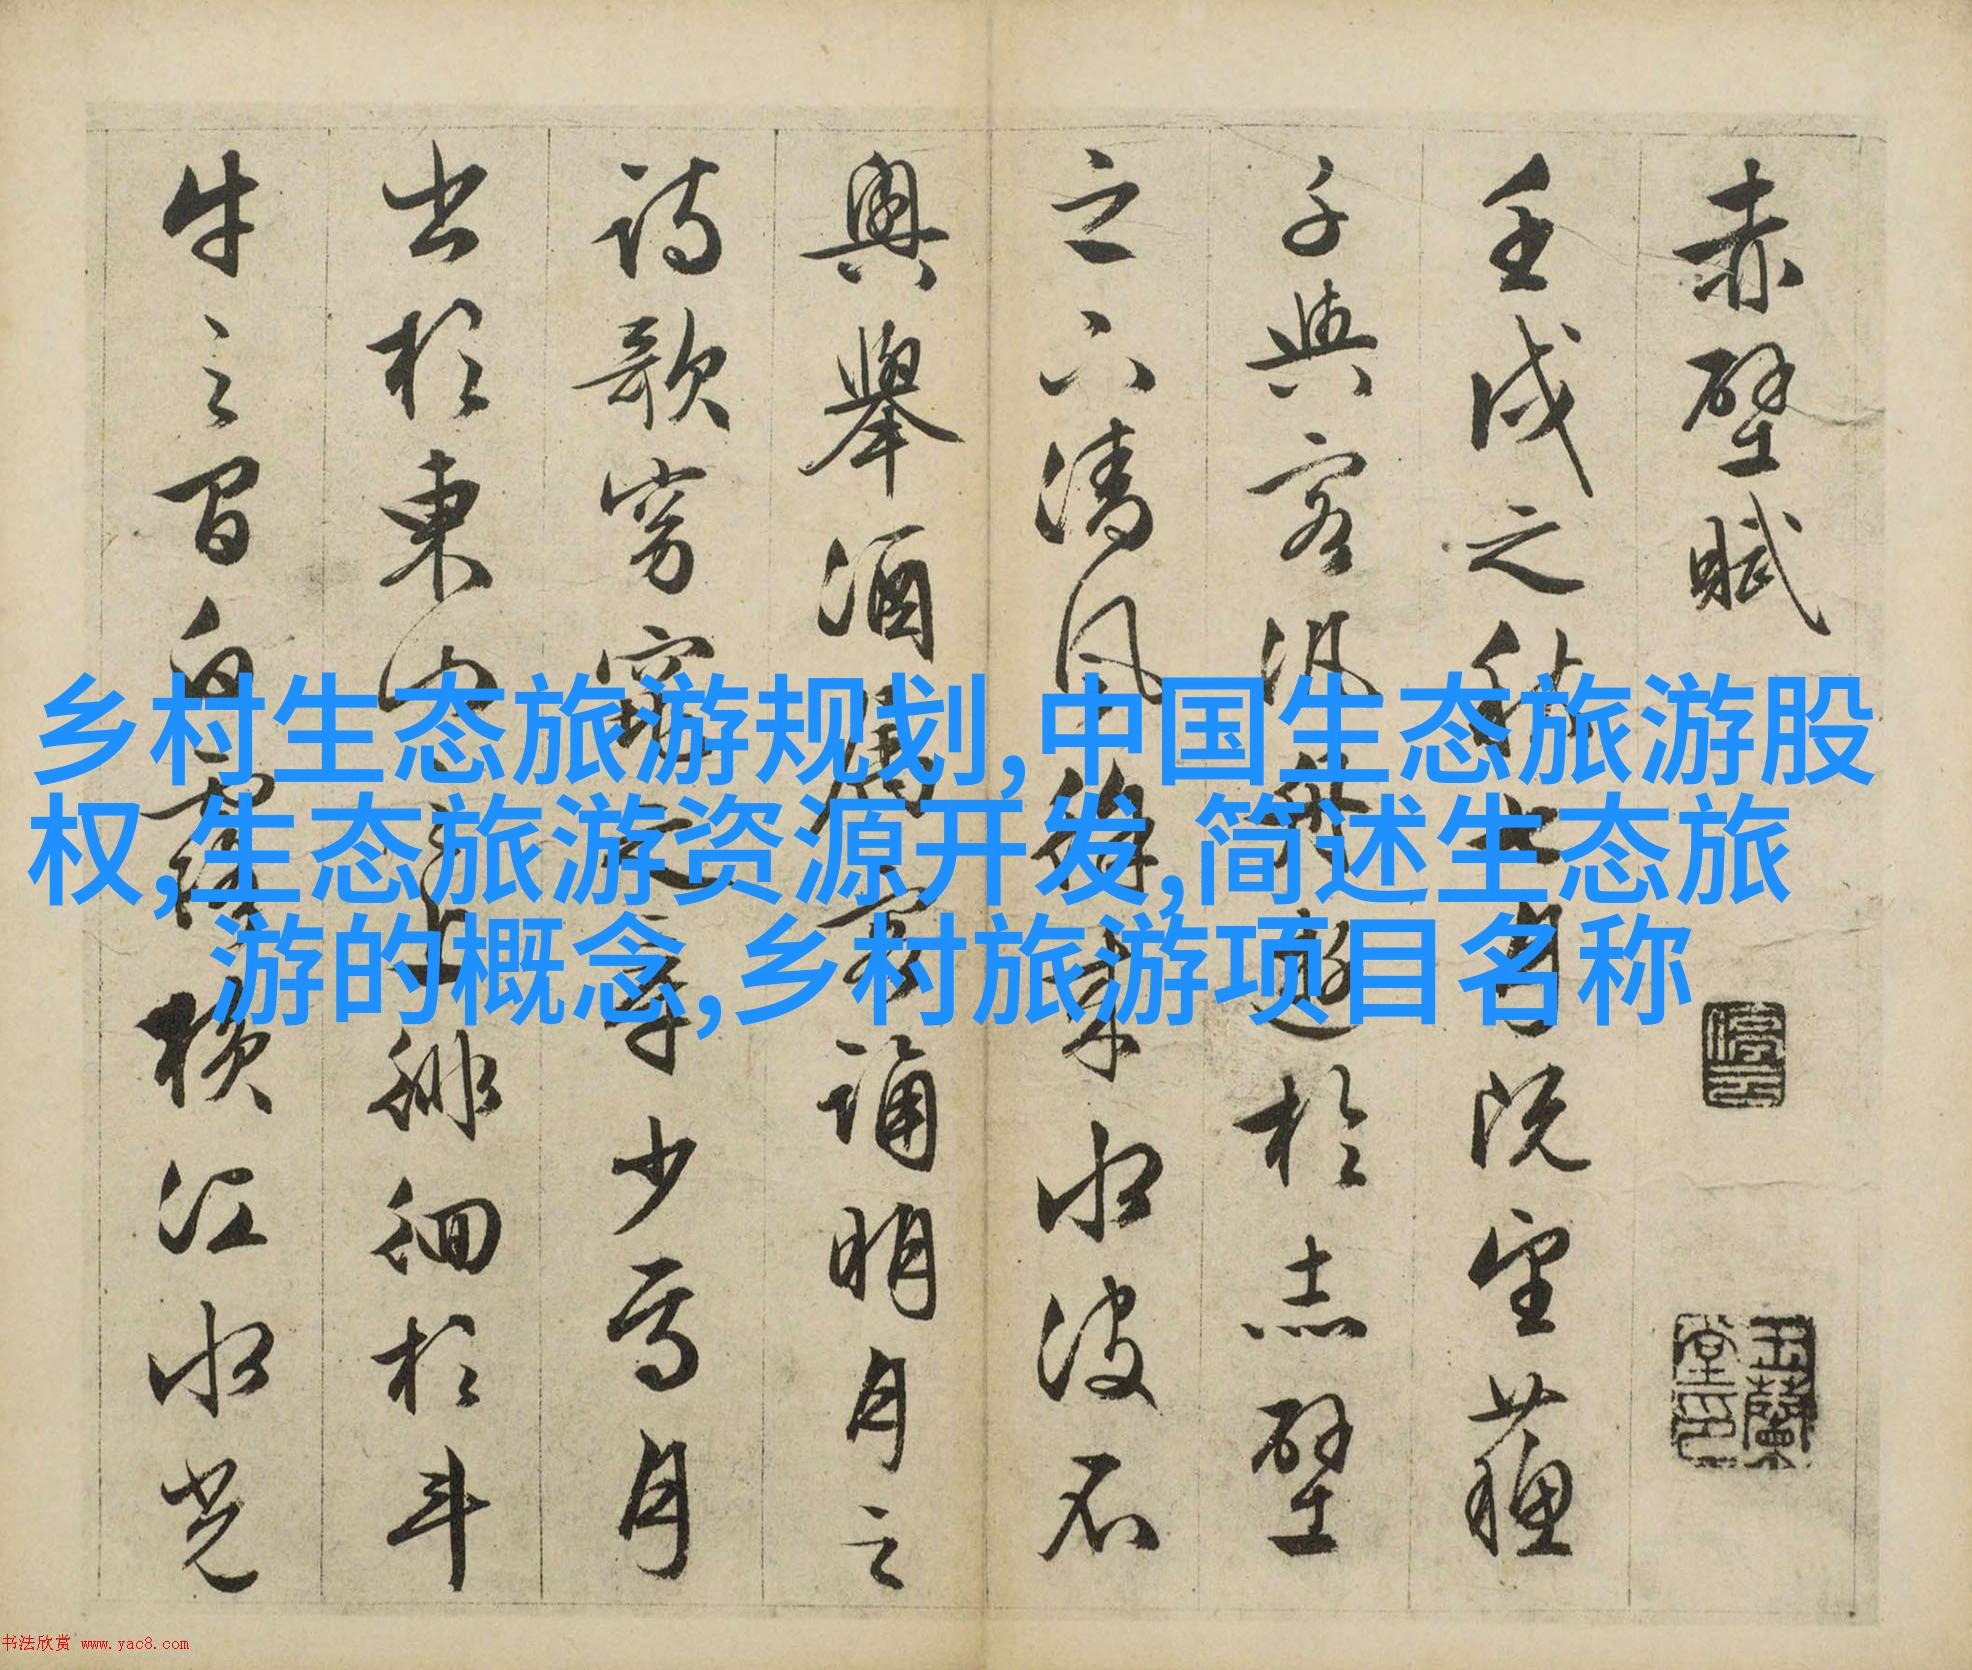 赤壁賦
壬戌之秋七月既望蘓
子與客汎舟遊於赤壁
之下清風徐来水波不
興舉酒屬客誦明月之
詩歌窈窕之章少焉月
出於東山之上徘徊於斗
牛之間白露横江水光
停雲
玉蘭堂印
乡村生态旅游规划,中国生态旅游股
权,生态旅游资源开发,简述生态旅
游的概念,乡村旅游项目名称
书法欣赏 www.yac8.com